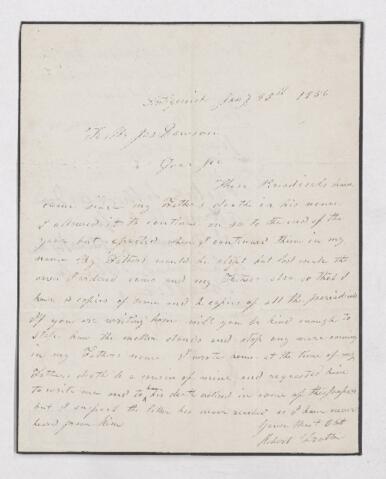 Antigonish Jany 25th 1856
To Mr Jas Dawson
Dear Sir
These Periodicals have
came since my Fathers death in his name
I allowed it to continue on so to the end of the
year but expected when I continued them in my
name my Fathers would be stopt but last week the
ones I ordered came and my Fathers also so that I
have 2 copies of some and 2 copies of all the periodicals
If you are writing home will you be kind enough to
state how the matter stands and stop any more coming
in my Fathers name I wrote home at the time of my
Fathers death to a cousin of mine and requested him
to write me and to have his death noticed in some of the papers
but I suspect the letter has never reached as I have never
heard from him
Yours Most Obt
Robert